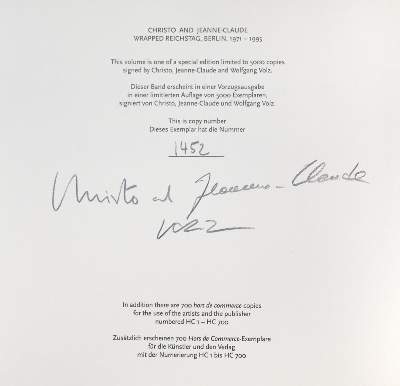 CHRISTO AND JEANNE-CLAUDE
WRAPPED REICHSTAG, BERLIN, 1971 – 1995
This volume is one of a special edition limited to 5000 copies
signed by Christo, Jeanne-Claude and Wolfgang Volz.
Dieser Band erscheint in einer Vorzugsausgabe
in einer limitierten Auflage von 5000 Exemplaren,
signiert von Christo, Jeanne-Claude und Wolfgang Volz.
This is copy number
Dieses Exemplar hat die Nummer
1452
Christo and Jeanne-Claude
VOLZ
In addition there are 700 hors de commerce copies
for the use of the artists and the publisher
numbered HC 1 – HC 700
Zusätzlich erscheinen 700 Hors de Commerce-Exemplare
für die Künstler und den Verlag
mit der Numerierung HC 1 bis HC 700